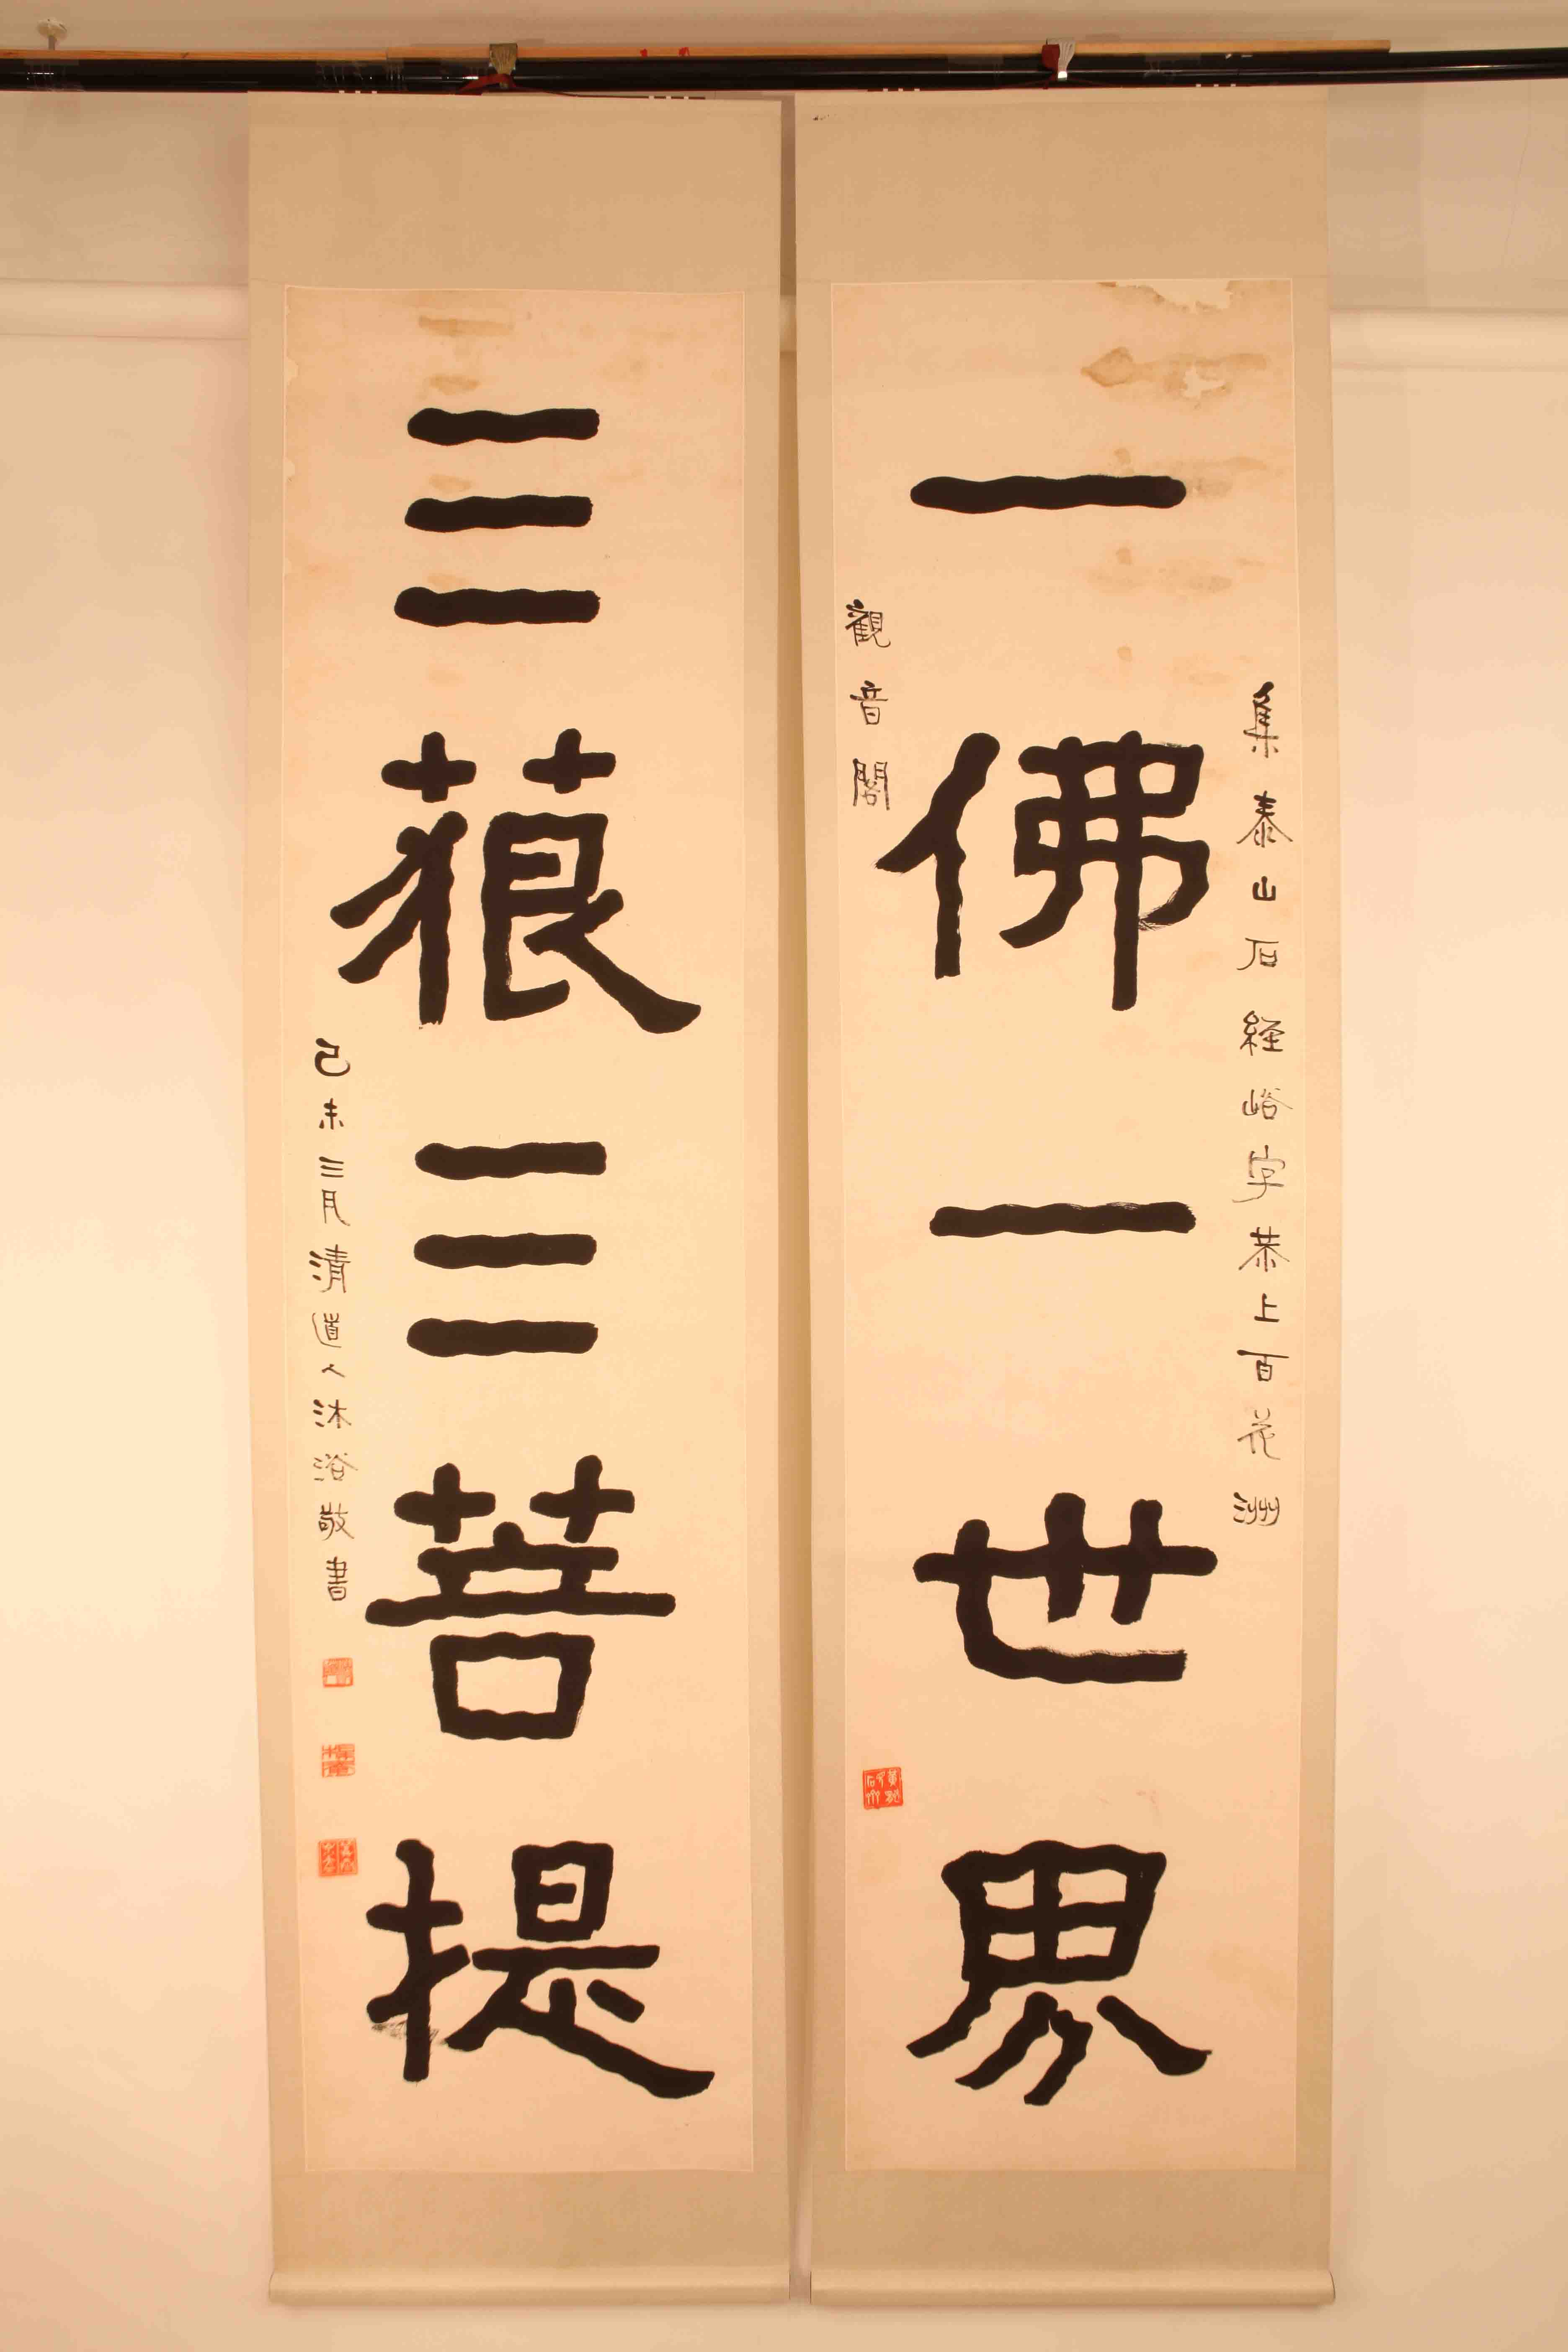 集泰山石經峪字恭上百花洲
一佛一世界
觀音閣
三藐三菩提
己未三月清道人沐浴敬書